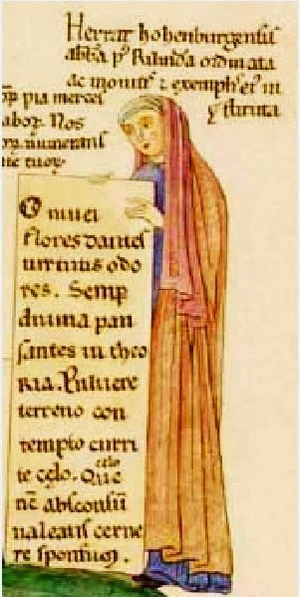 Herrat hohenburgensis
abb̅a p⁹ Rilinda̅ ordinata
ac monitꝭ ⁊ exemplꝭ ei⁹ in
stituta
pia merces
laboꝝ. Nos
numerans
O nivei
flores dantes
virtutis odo
res. Semp
divina pau
santes in theo
ria. Pulvere
terreno con
tempto curri
te celo. Que
nc̅ absconsu̅
valeatis cerne
re sponsum.